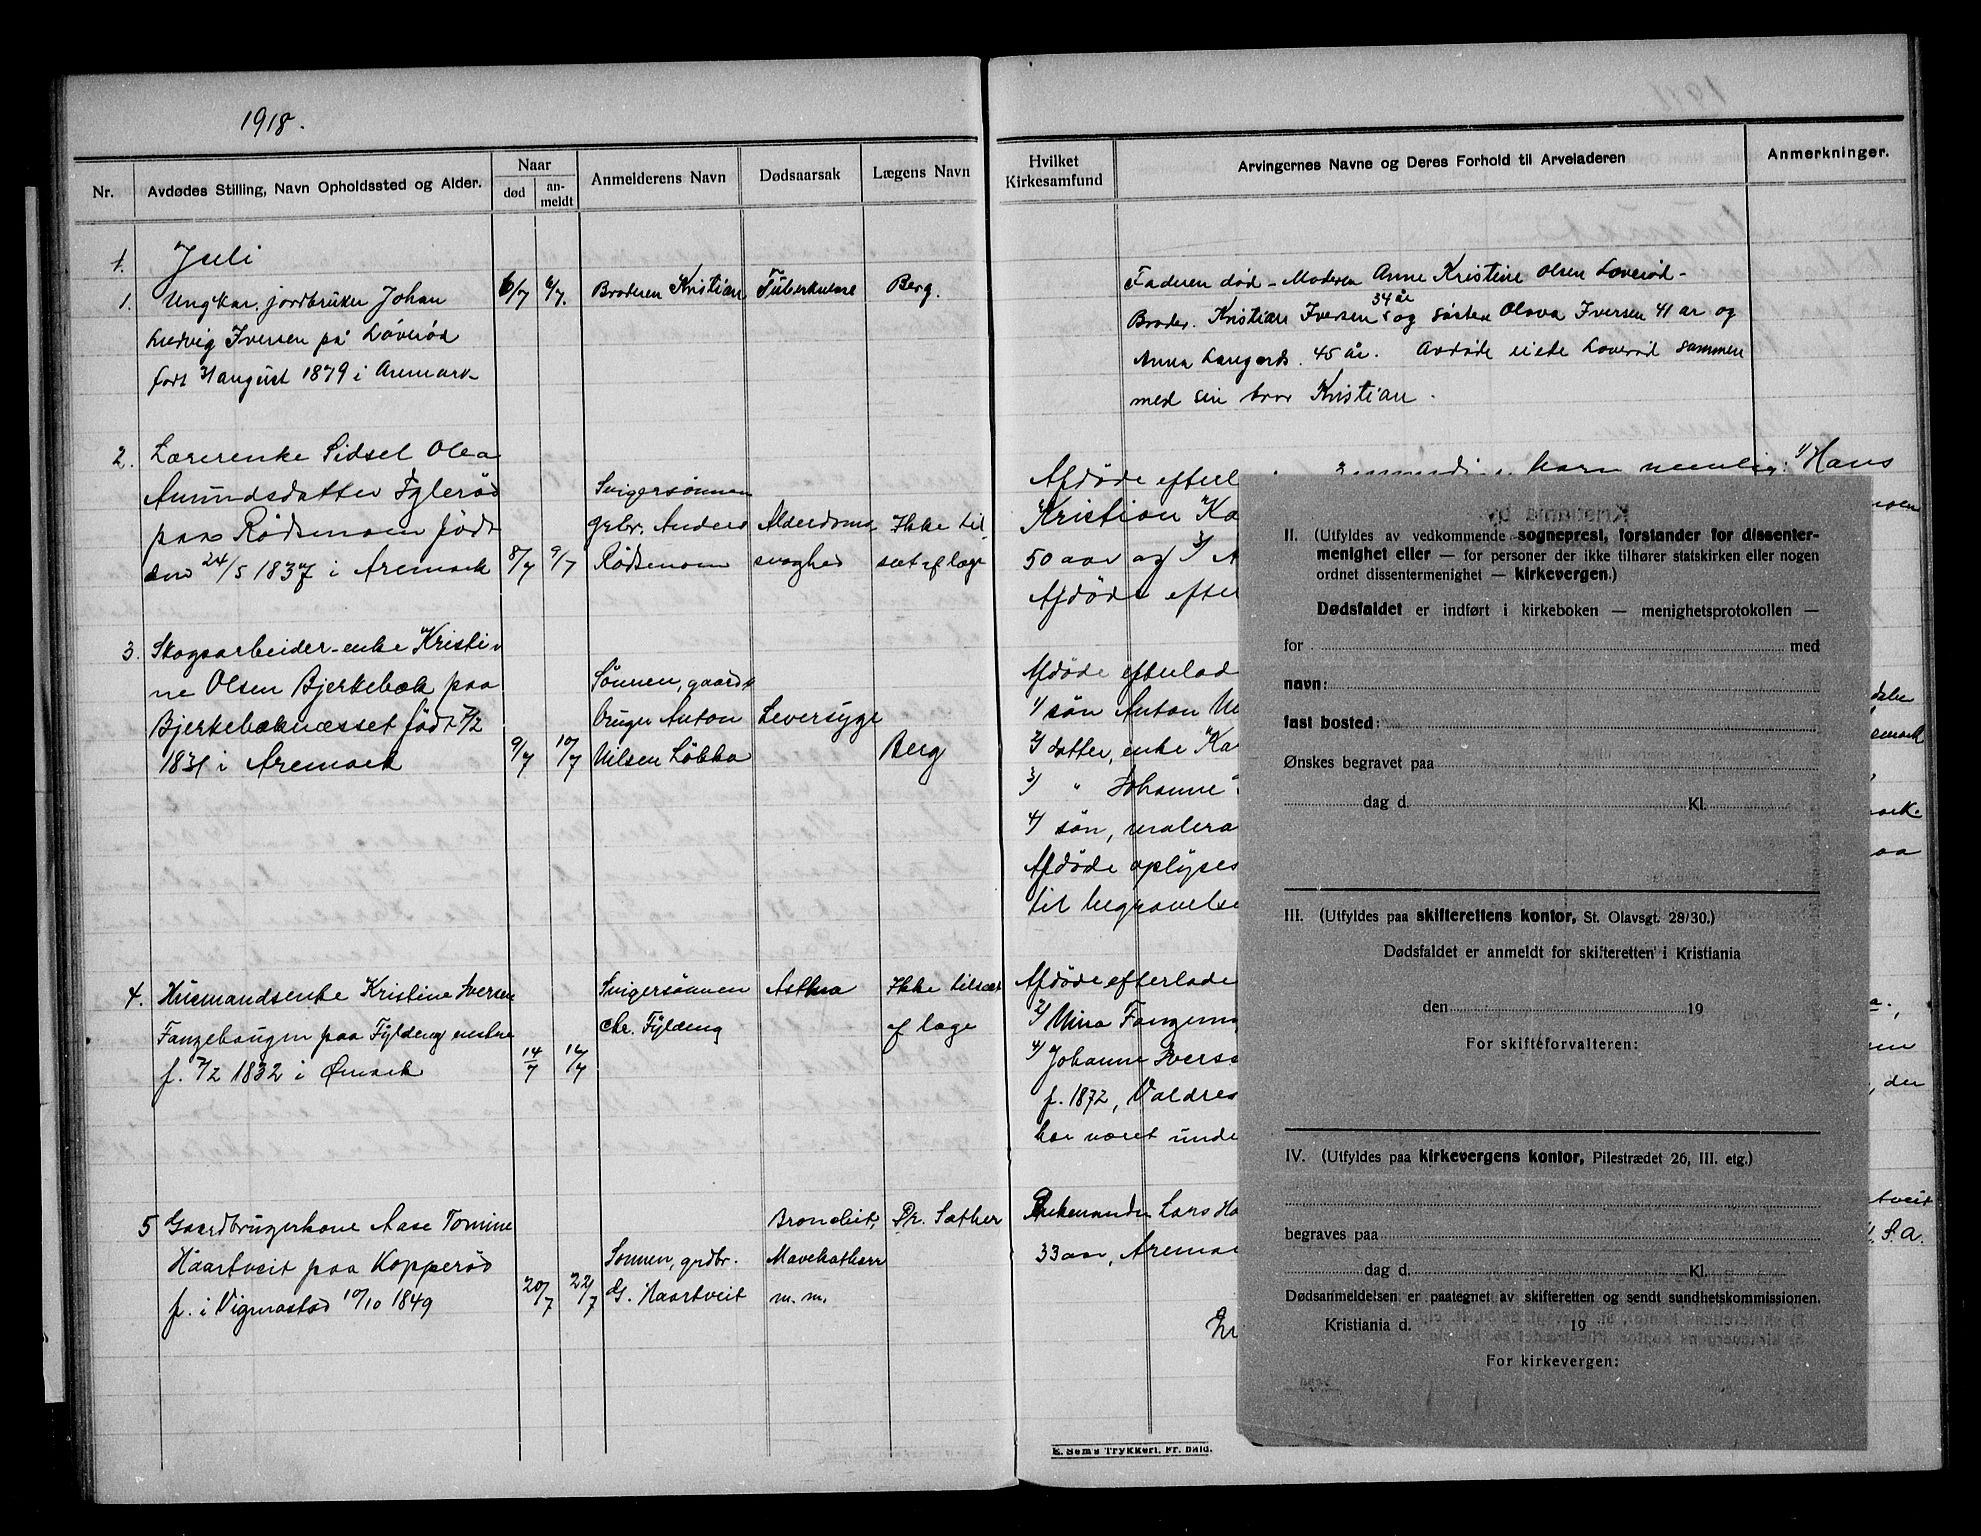 1918.
Nr.
Avdødes Stilling, Navn Opholdssted og Alder.
Naar
død
an-
meldt
Anmelderens Navn
Dødsaarsak
Lægens Navn
Hvilket
Kirkesamfund
Arvingernes Navne og Deres Forhold til Arveladeren
Anmerkninger.
1. Juli
1. Ungkar, jordbruker Johan
Ludvig Iversen på Löveröd
født 31 august 1879 i Aremark
6/7 6/7.
Broderen Kristian
Tuberkulose
Berg.
Faderen död - Moderen Anne Kristine Olsen Löveröd -
Broder. Kristian Iversen 34 år og søsten Olava Iversen 41 år og
Anna Langerds. 45 år. Avdøde eiede Løverød sammen
med sin bror Kristian.
2. Lærerenke Sidsel Olea
Amundsdatter Fglerød
paa Rødsmoen født
den 24/5 1837 i Aremark
8/7 9/7
Svigersønnen
grbr. Anders
Rødsmoen
Alderdoms
svaghed
Ikke til
set af læge
Afdøde efterl
børn nemlig: 1/ Hans
Kristian Ka
50 aar og 3/ A
Afdøde efter
3. Skogsarbeider-enke Kristi-
ne Olsen Bjerkebæk paa
Bjerkebæknæsset født 7/2
1831 i Aremark
9/7 10/7
Sønnen, gaard-
bruger Anton
Nilsen Løbka
Leversyge
Berg
Afdøde efterlad
1/ søn Anton Ni
2/ datter, enke Ka
3/ " Johanne
4/ søn, malera
Afdøde oplyses
til begravelse
4. Husmandsenke Kristine Iversen
Fangehaugen paa Fyldeng østre
f. 7/2 1832 i Ømark
14/7 16/7
Svigersønnen
Chr. Fyldeng
Asthma
Ikke tilsæt
af læge
Afdøde efterlade
2/ Nina Fangeng
4/ Johanne Iverse
f. 1872, Valdres
har været unde
5 Gaardbrugerkone Aase Tomine
Haartveit paa Kopperød
f. i Vigmostad 10/10 1849
20/7 22/7
Sønnen, grdbr.
G. Haartveit
Bronchit,
Mavekatharr
m. m.
Dr. Sæther
Enkemanden Lars Ha
33 aar, Aremar
tveit
S.A.
E. Sems Trykkeri, Fr.hald.
Kristiania by
II. (Utfyldes av vedkommende sogneprest, forstander for dissenter-
menighet eller — for personer der ikke tilhører statskirken eller nogen
ordnet dissentermenighet — kirkevergen.)
Dødsfaldet er indført i kirkeboken — menighetsprotokollen —
for med
navn:
fast bosted:
Ønskes begravet paa
dag d. Kl.
III. (Utfyldes paa skifterettens kontor, St. Olavsgt. 28/30.)
Dødsfaldet er anmeldt for skifteretten i Kristiania
den 19
For skifteforvalteren:
IV. (Utfyldes paa kirkevergens kontor, Pilestrædet 26, III. etg.)
begraves paa
dag d. Kl.
Dødsanmeldelsen er paategnet av skifteretten og sendt sundhetskommissionen.
Kristiania d. 19
For kirkevergen: